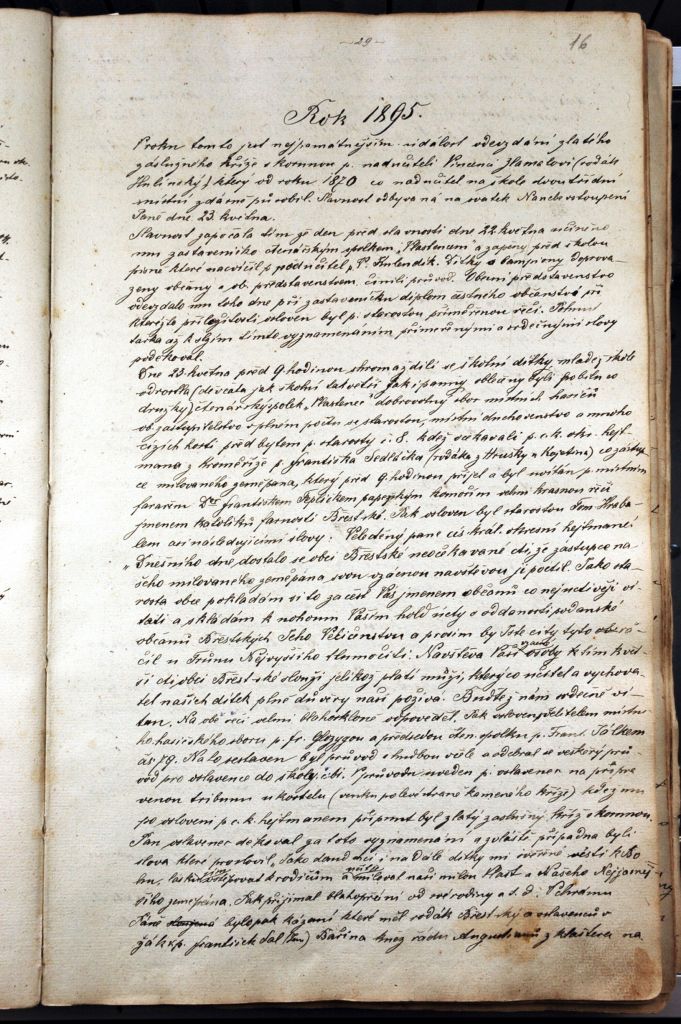 - 29 -
16
Rok 1895.
V roku tomto jest nejpamátnějším událost odevzdání zlatého
záslužného kříže s korunou p. nadučiteli Vincenci Hamalovi (rodák
Hulínský) který od roku 1870 co nadučitel na škole dvoutřídní
místní zdárně působil. Slavnost odbývaná na svátek Nanebevstoupení
Páně dne 23. května.
Slavnost započala tím že den před slavností dne 22 května učiněno
mu zastaveníčko čtenářským spolkem „Vlastenem" a zapěny před školou
písně které nacvičil p. podučitel V. Kulendík. Dítky s lampiony doprova-
zeny občany a ob. představenstvem činili průvod. Obecní představenstvo
odevzdalo mu toho dne při zastaveníčku diplom čestného občanství při
kterejto příležitosti osloven byl p. starostou přiměřenou řečí.
tak až k slzím tímto vyznamenáním přiměřenými a srdečnými slovy
poděkoval.
Dne 23 května před 9. hodinou shromáždili se školní dítky, mládež škole
odrostlá (děvčata jak školní tak větší jak i panny oblečeny byli po bílu co
družky) čtenářský spolek „Vlastenec" dobrovolný sbor místních hasičů
ob. zastupitelstvo v plném počtu se starostou, místní duchovenstvo a mnoho
cizích hostí před bytem p. starosty č. 8. kdež očekávali p. c. k. okr. hejt-
mana z Kroměříže p. Františka Sedláčka (rodáka z Hrušky u Kojetína) co zástup-
ce milovaného zeměpána, který před 9. hodinou přijel a byl uvítán p. místním
farářem Dr. Františkem papežským komořím velmi krásnou řečí
jménem katolíků farnosti Břestské. Pak osloven byl starostou Jom. Hrába-
lem asi následujícími slovy: Veleděný pane cís. král. okresní hejtmane!
„Dnešního dne dostalo se obci Břestské neočekávané cti, že zástupce na-
šeho milovaného zeměpána svou vzácnou návštěvou ji poctil. Jako sta-
rosta obce pokládám si to za čest Vás jménem občanů co nejuctivěji ví-
tati a skládám k nohoum Vaším hold úcty a oddanosti poddanské
občanů Břestských Jeho Veličenstvu a prosím by jste city tyto ráčil
u Trůnu Nejvyššího tlumočiti. Návštěva Vaší vzácné osoby k tím květ-
ší cti obci Břestské slouží jelikož platí muži, který co učitel a vychova-
tel našich dítek plné důvěry naší požívá. Buďtež nám srdečně ví-
tán. Na obě řeči velmi blahosklonně odpověděl. Pak osloven velitelem místní-
ho hasičského sboru p. Fr. a předsedou čten. spolku p. Frant.
čís 79. Na to sestaven byl průvod s hudbou v čele a odebral se veškerý prů-
vod pro oslavence do školy. V průvodu uveden p. oslavenec na připra-
venou tribunu u kostela (venku po levé straně kameného kříže) kdež mu
po oslovení p. c. k. hejtmanem připnut byl zlatý záslužný kříž s korunou.
Pan oslavenec děkoval za toto vyznamenání a zvláště případna byli
slova které pronesl „Jako dosud chci i nadále dítky mi svěřené vésti k Bo-
hu, lásku k rodičům a milovat naši milou Vlast a Našeho Nejjasněj-
šího zeměpána. Pak přijímal blahopřání od své rodiny a t. d. V chrámu
Páně bylo pak kázaní které měl rodák Břestský a oslavencův
žák v. p. František Sal (Jan) Bařina kněz řádu Augustianů z kláštera na